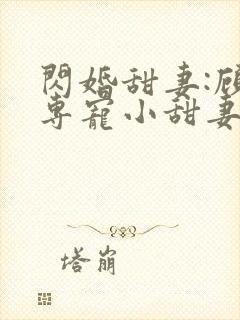 閃婚甜妻:顧
專寵小甜妻
塔崩